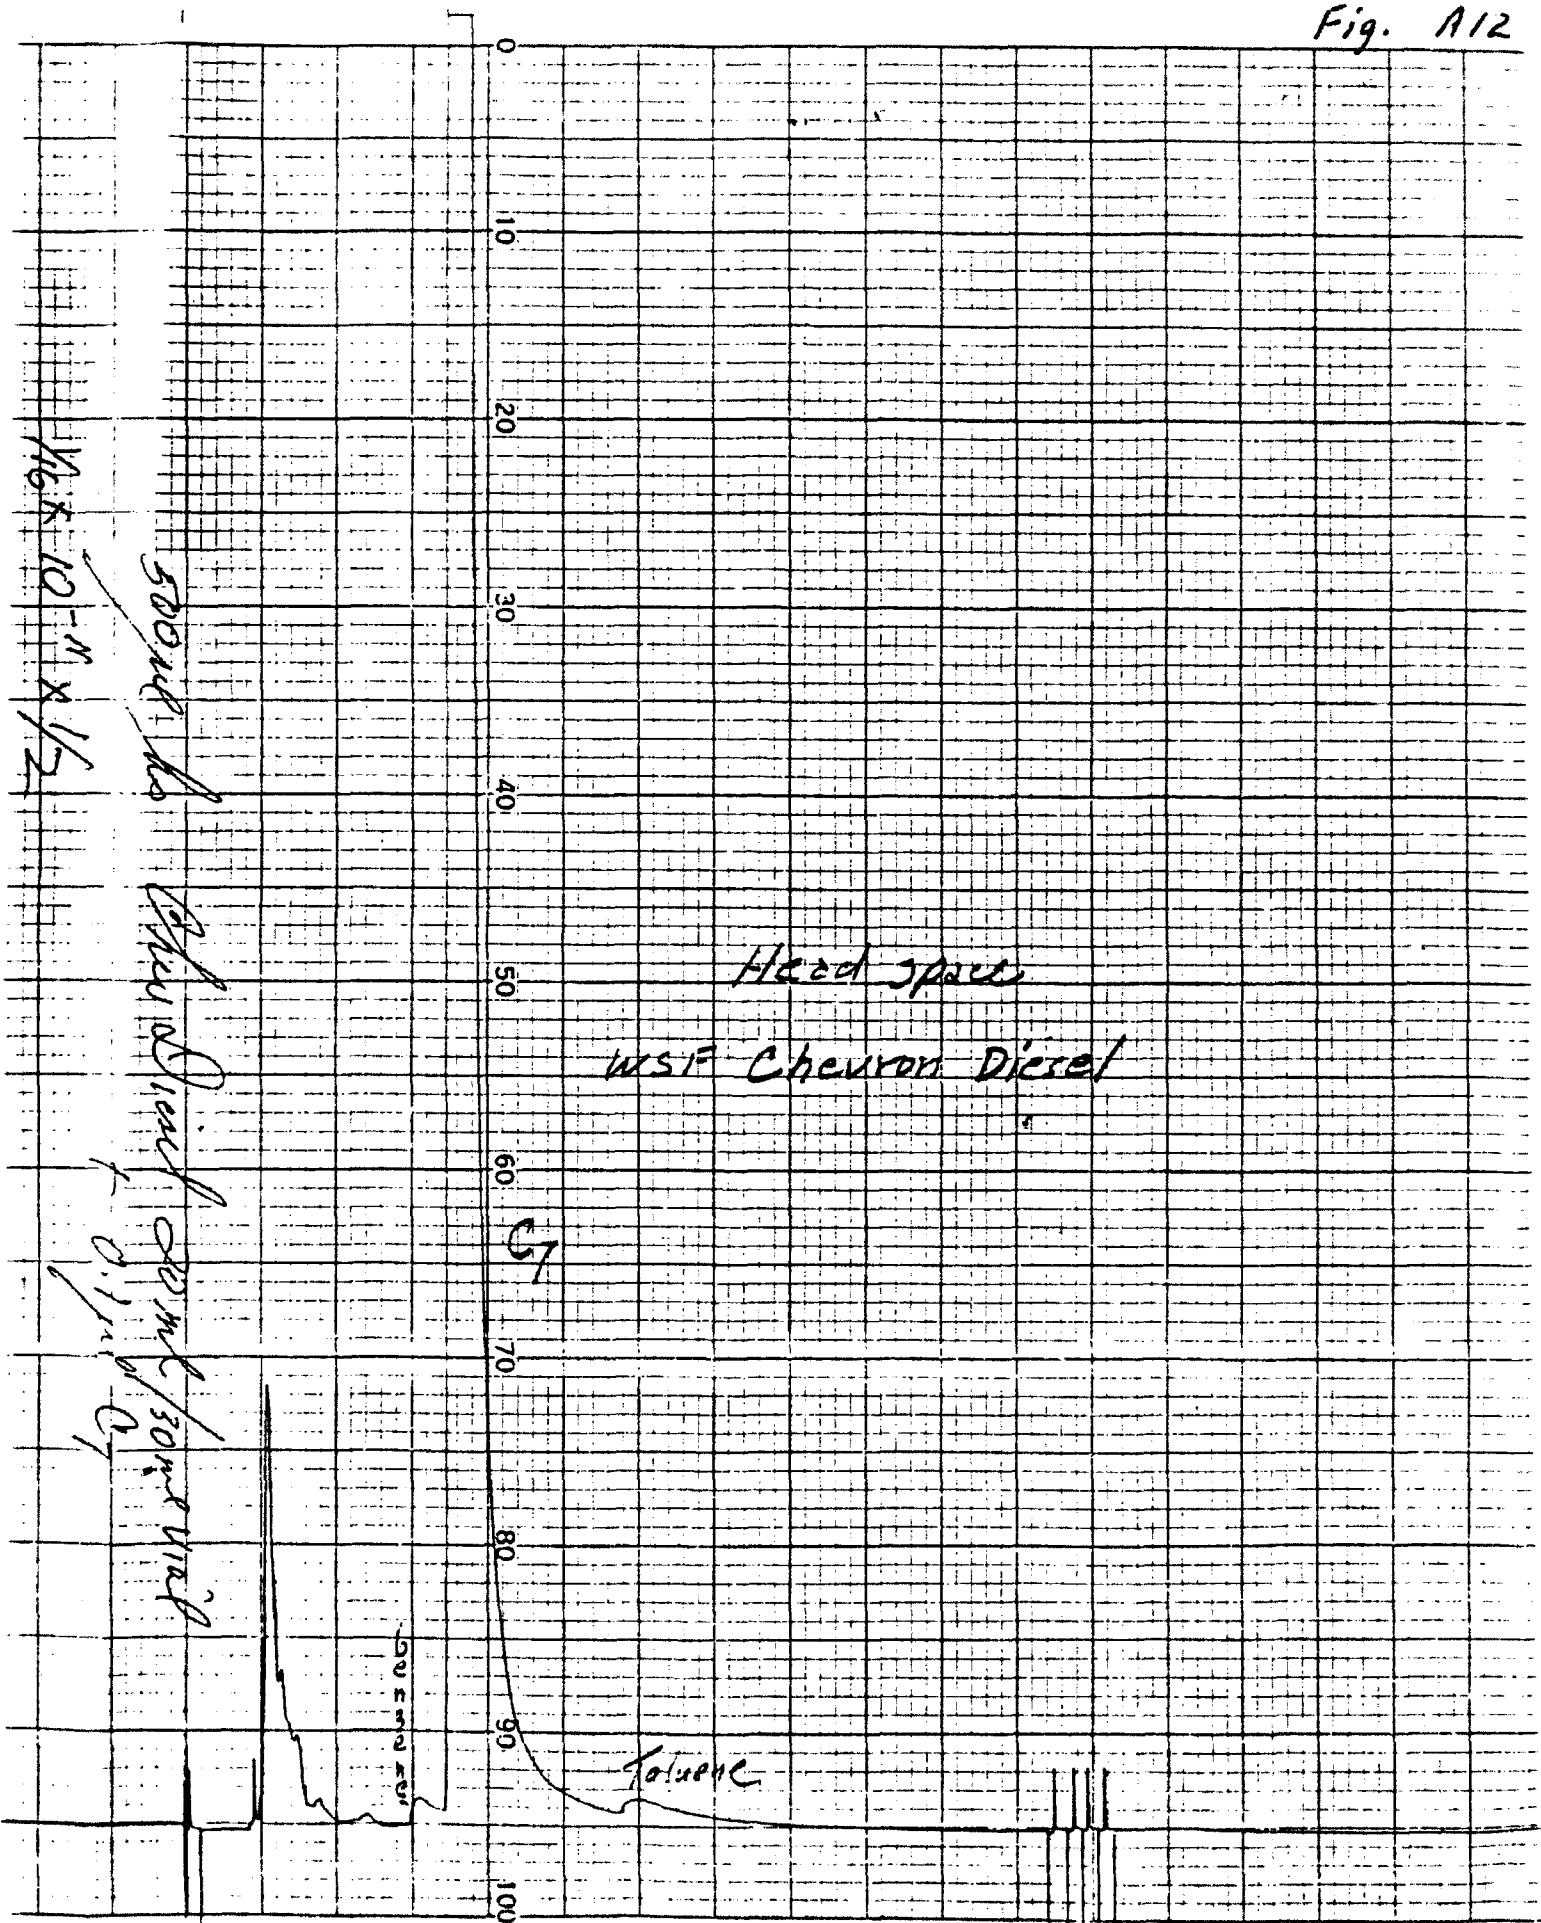 Fig. A12
0
10
20
30
40
50
60
70
80
90
100
Head space
WSF Chevron Diesel
C7
Toluene
benzene
500 µl hs Chev Diesel 20 ml/30 ml vial
+ 0.1 µl C7
1/16 x 10-11 x 1/2